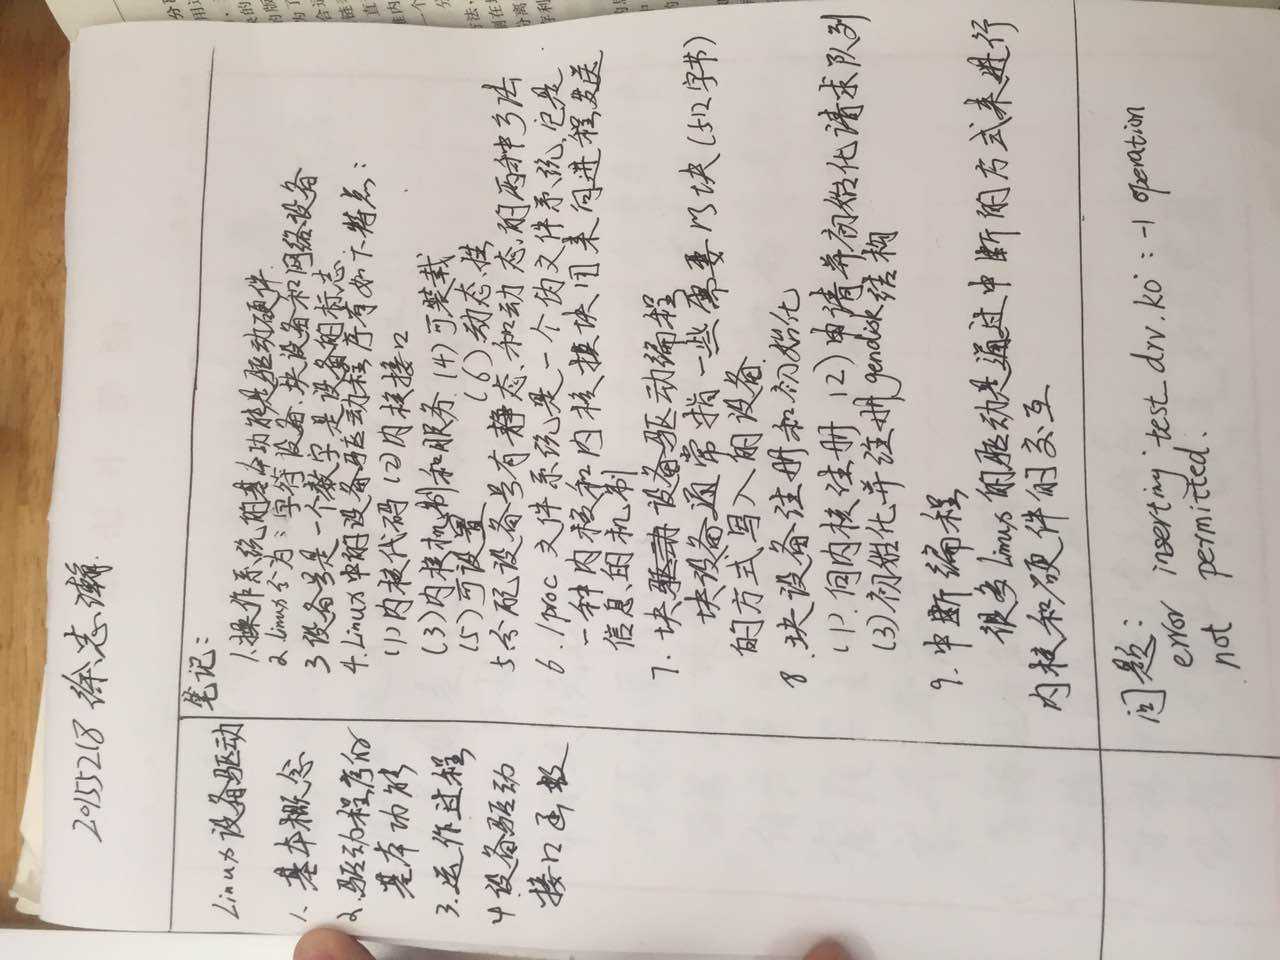 20155218 徐志瀚
Linux设备驱动
1. 基本概念
2. 驱动程序的
基本功能
3. 运作过程
4 设备驱动
接口函数
笔记：
1. 操作系统的基本功能是驱动硬件
2 Linux分为：字符设备、块设备和网络设备
3 设备号是一个数字是设备的标志
4. Linux中的设备驱动程序有如下特点：
(1) 内核代码 (2) 内核接口
(3) 内核机制和服务 (4) 可装载
(5) 可设置 (6) 动态性
5 分配设备号有静态和动态的两种方法
6. /proc 文件系统是一个伪文件系统，它是
一种内核和内核模块用来向进程发送
信息的机制
7. 块设备驱动编程
块设备通常指一些需要以块(512字节)
的方式写入的设备.
8 块设备注册和初始化
(1) 向内核注册 (2) 申请并初始化请求队列
(3) 初始化并注册 gendisk 结构
9. 中断编程
很多Linux的驱动是通过中断的方式来进行
内核和硬件的交互
问题：
error inserting test_drv.ko : -1 operation
not permitted.